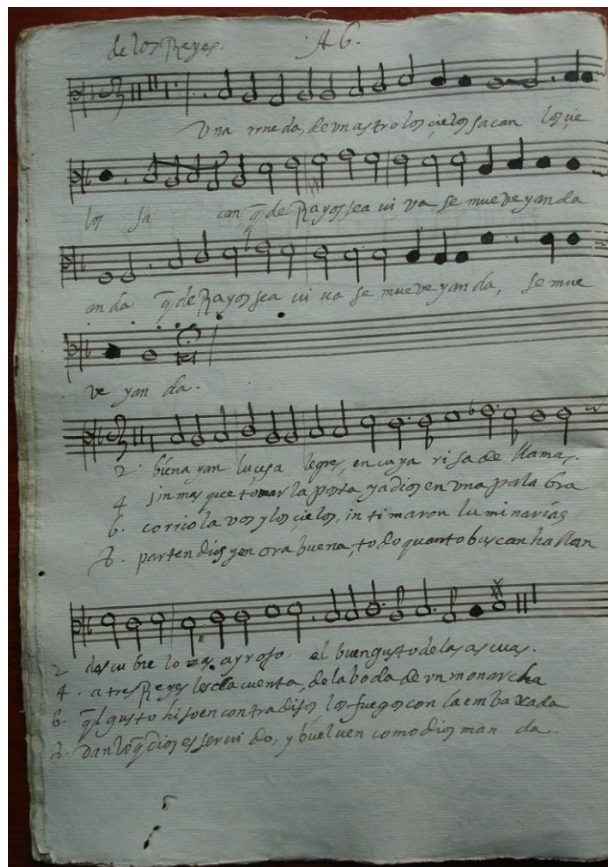 de los Reyes. A 6.
Una rrueda, de un astro los çielos sacan los çie
los sa can q̃ de Rayos sea vi va se mueve y anda
anda q̃ de Rayos sea vi va se mueve y anda, se mue
ve y an da.
2. luçes a legres, en cuya ri sa de llamas.
4 sin mas que tomar la posta, y a dios en una pala bra
6. corrio la vos y los cielos, in timaron lu minarias
8. parten dios y en ora buena, to do quanto buscan hallan
2 descu bre lo mas ayroso el buen gusto de las ascuas.
4. a tres Reyes les da cuenta, de la boda de un monarcha
6. gusto hiso en contra disos los fuegos con la em baxada
8. dan lo q̃ dios es ser vi do, y buelven como dios man da.